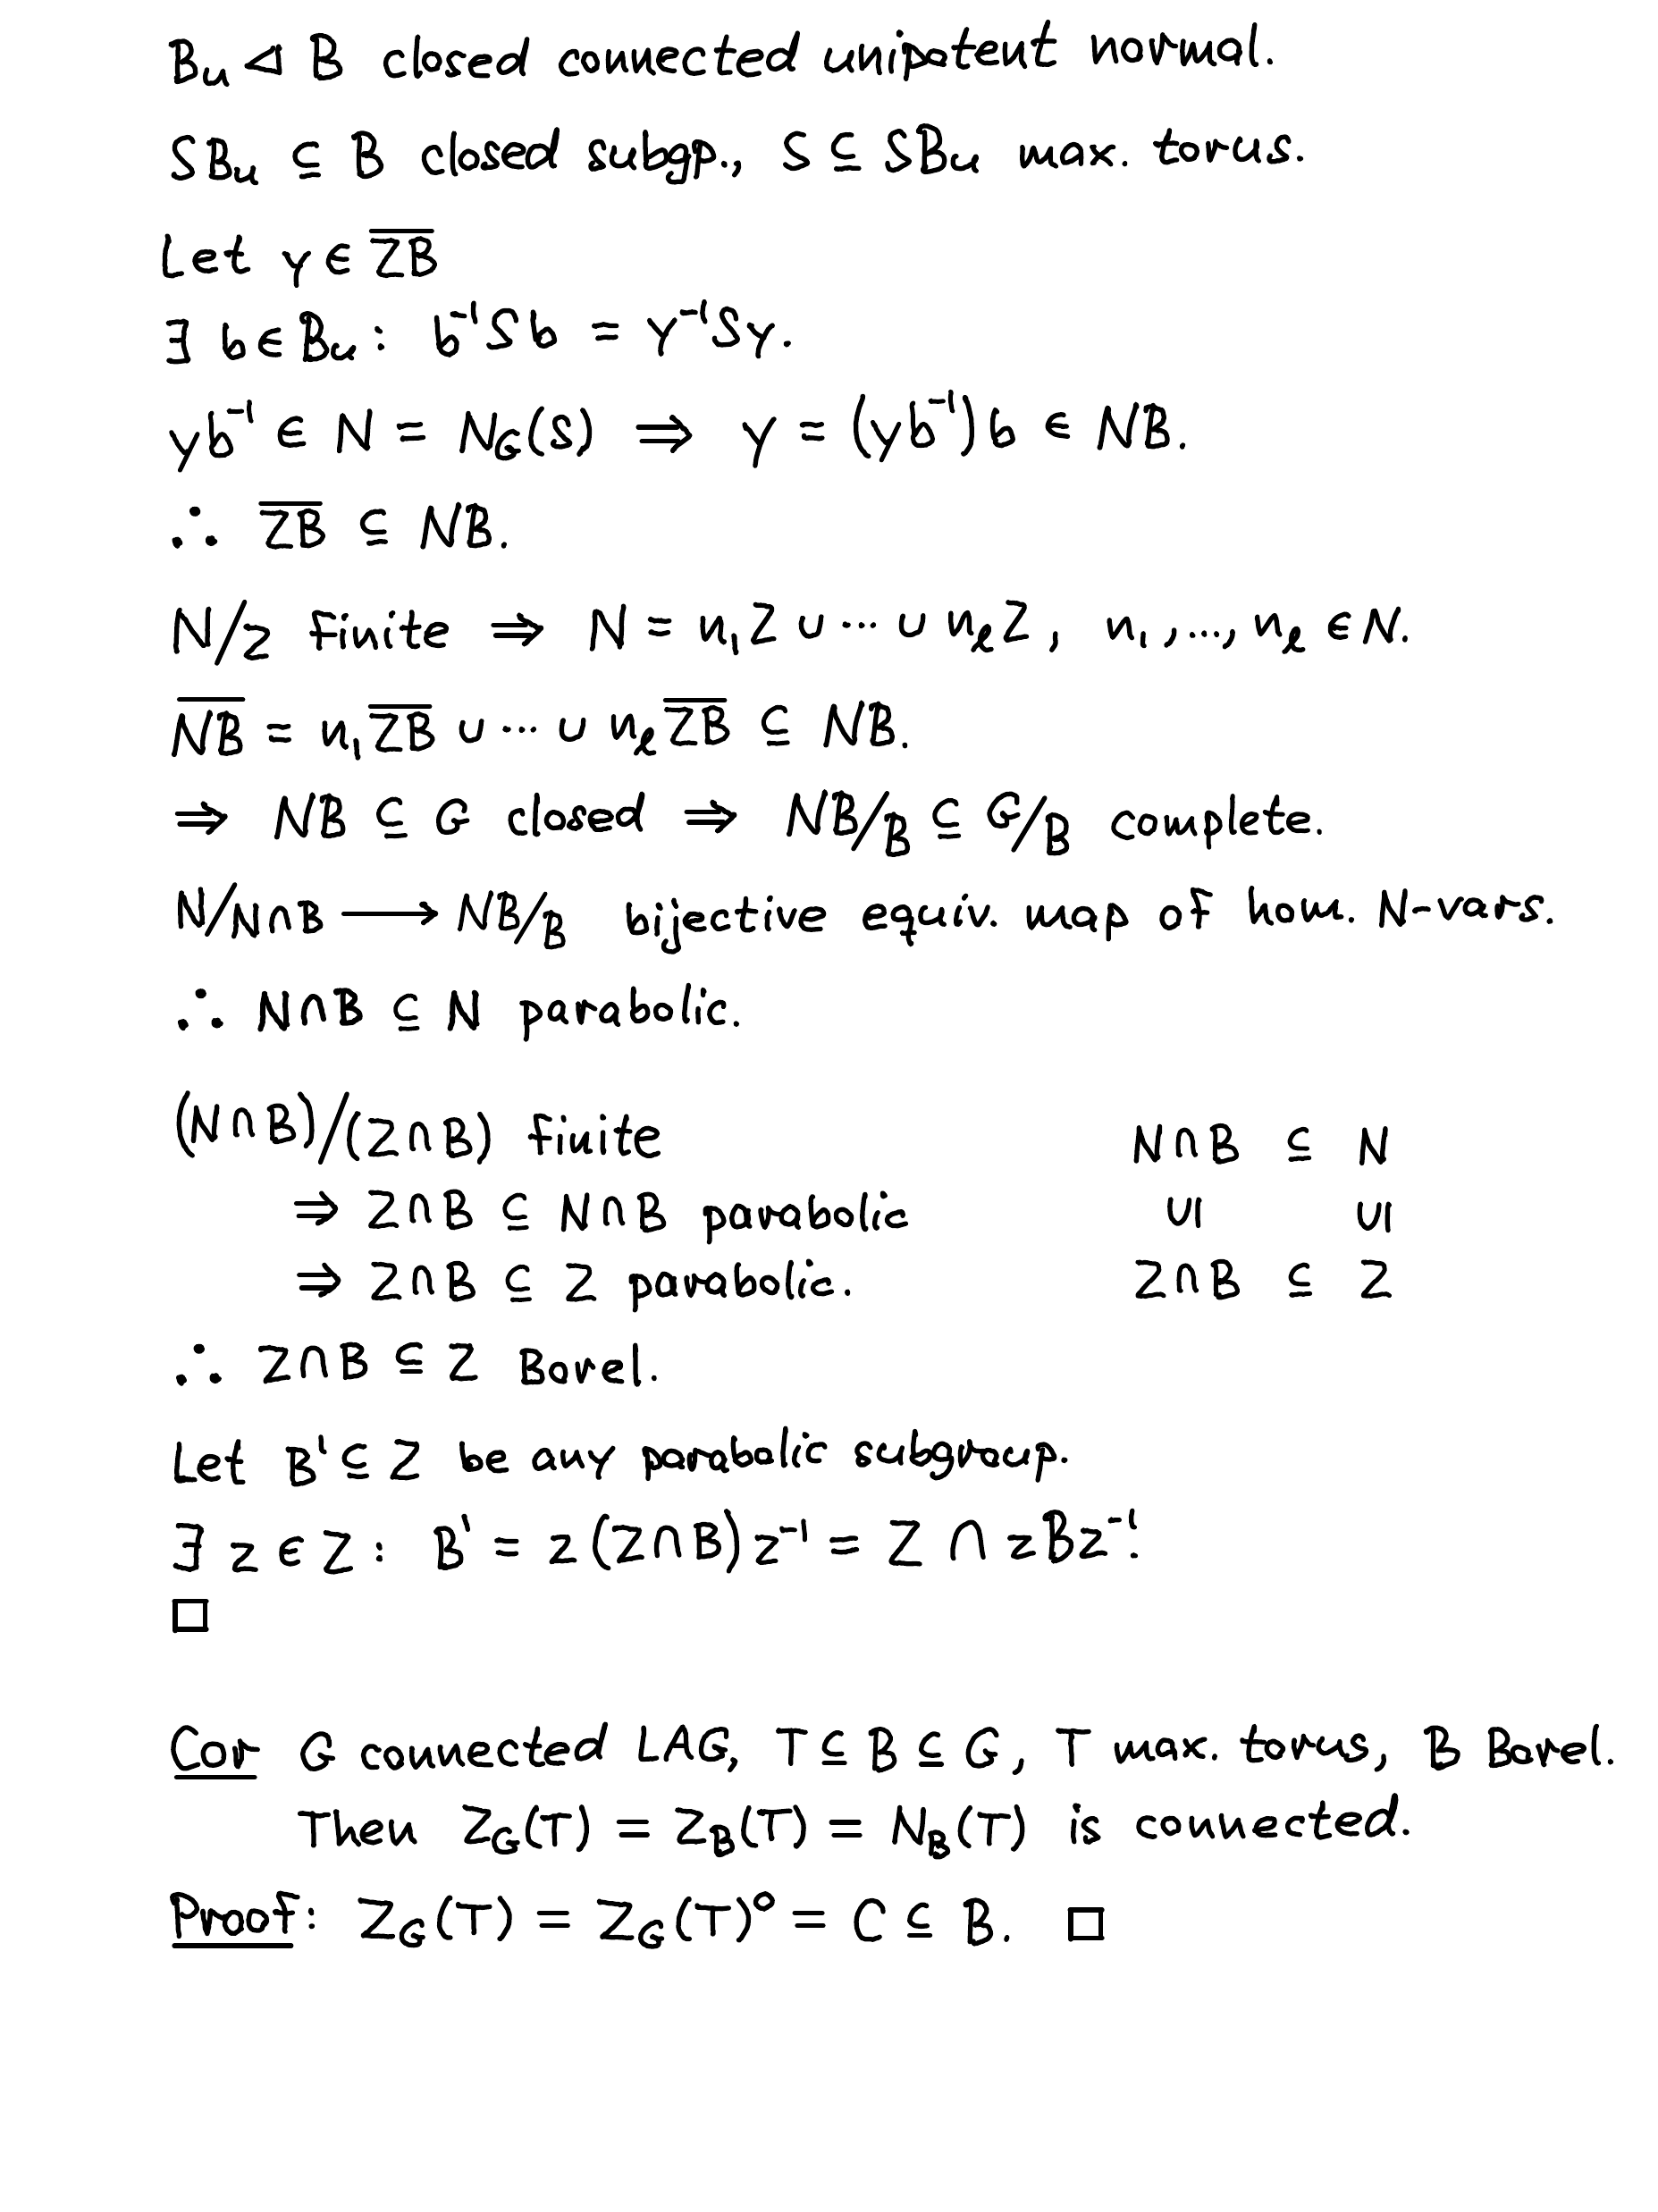 Bᵤ ◁ B closed connected unipotent normal.
SBᵤ ⊆ B closed subgp., S ⊆ SBᵤ max. torus.
Let y ∈ \overline{ZB}
∃ b ∈ Bᵤ : b⁻¹Sb = y⁻¹Sy.
yb⁻¹ ∈ N = N_G(S) ⇒ y = (yb⁻¹)b ∈ NB.
∴ \overline{ZB} ⊆ NB.
N/Z finite ⇒ N = n₁Z ∪ ⋯ ∪ n_ℓ Z, n₁, …, n_ℓ ∈ N.
\overline{NB} = n₁\overline{ZB} ∪ ⋯ ∪ n_ℓ \overline{ZB} ⊆ NB.
⇒ NB ⊆ G closed ⇒ NB/B ⊆ G/B complete.
N/N∩B ⟶ NB/B bijective equiv. map of hom. N-vars.
∴ N∩B ⊆ N parabolic.
(N∩B)/(Z∩B) finite
⇒ Z∩B ⊆ N∩B parabolic
⇒ Z∩B ⊆ Z parabolic.
N∩B ⊆ N
∪| ∪|
Z∩B ⊆ Z
∴ Z∩B ⊆ Z Borel.
Let B' ⊆ Z be any parabolic subgroup.
∃ z ∈ Z : B' = z(Z∩B)z⁻¹ = Z ∩ zBz⁻¹.
□
Cor G connected LAG, T ⊆ B ⊆ G, T max. torus, B Borel.
Then Z_G(T) = Z_B(T) = N_B(T) is connected.
Proof: Z_G(T) = Z_G(T)° = C ⊆ B. □